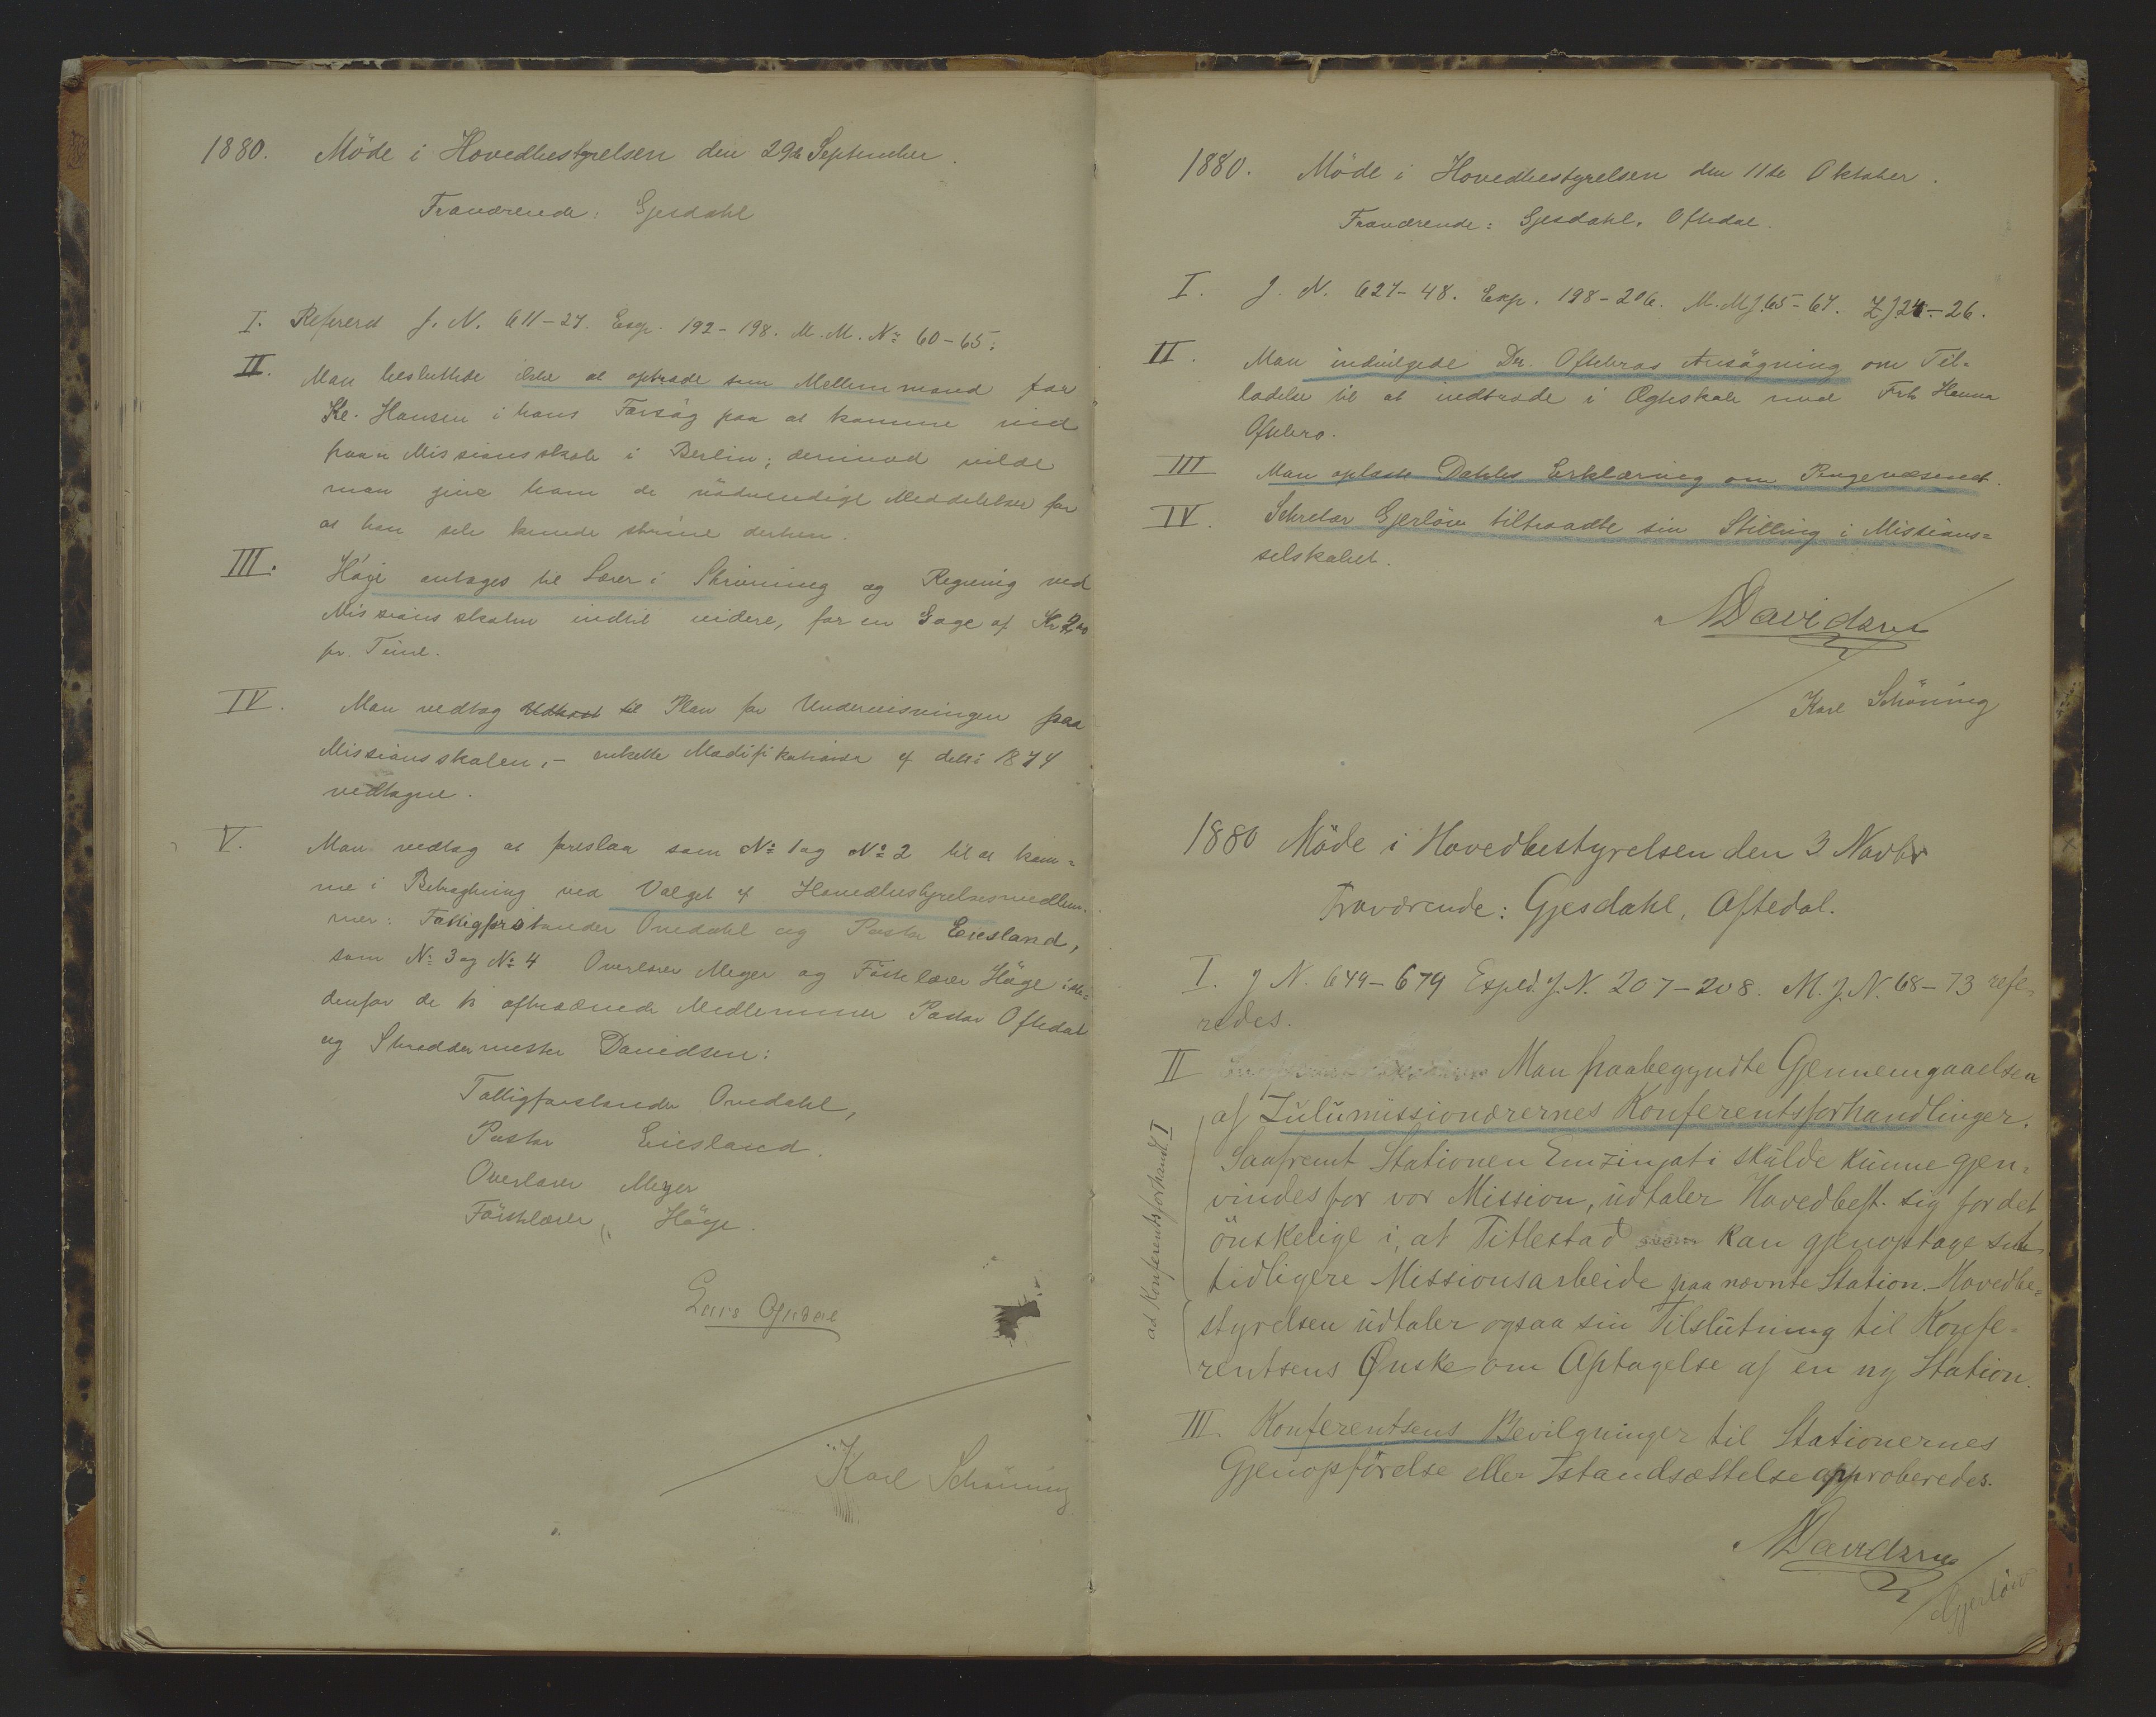 1880. Möde i Hovedbestyrelsen den 29de September.
Fraværende: Gjesdahl
I. Refererd J. N. 611-27. Exp. 192-198. M. M. No 60-65.
II. Man besluttede ikke at optræde som Mellemmand for
Kl. Hansen i hans Forsög paa at komme ind
paa Missionsskole i Berlin; derimod vilde
man give ham de nödvendige Meddelelser for
at han selv kunde skrive derhen.
III. Höje antages til Lærer i Skrivning og Regning ved
Missionsskolen indtil videre, for en Gage af Kr 2,00
pr. Time.
IV. Man vedtog Udkast til Plan for Undervisningen paa
Missionsskolen, - enkelte Modifikationer af dette 1874
vedtagne.
V. Man vedtog at foreslaa som No 1 og No 2 til at kom=
me i Betragtning ved Valget af Hovedbestyrelsesmedlem-
mer: Fattigforstander Omdahl og Pastor Eriesland,
som No 3 og No 4 Overlærer Meyer og Förstelærer Höge iste=
denfor de to aftrædende Medlemmer Pastor Oftedal
og Skreddermester Davidsen:
Fattigforstander Omdahl,
Pastor Eriesland.
Overlærer Meyer
Förstelærer Höye.
Lars Oftedal
Karl Schöning
1880. Möde i Hovedbestyrelsen den 11te Oktober.
Fraværende: Gjesdahl, Oftedal.
I. J. N. 627-48. Exp. 198-206. M. M J. 65-67. Z J. 24-26.
II. Man indvilgede Dr. Oftebros Ansögning om Til=
ladelse til at indtræde i Ægteskab med Frk Hanna
Oftebro.
III Man oplæste Dahles Erklæring om Pengevæsenet.
IV. Sekretær Gjerlöw tiltraadte sin Stilling i Missions=
selskabet.
N Davidsen
Karl Schöning
1880 Möde i Hovedbestyrelsen den 3 Novbr
Fraværende: Gjesdahl, Oftedal.
I. J N. 649-679 Exped. J. N. 207-208. M. J. N. 68-73 refe-
redes.
II Man paabegyndte Gjennemgaaelsen
af Zulumissionærernes Konferentsforhandlinger.
ad Konferentsforhandl. I
Saafremt Stationen Emzinjati skulde kunne gjen=
vindes for vor Mission, udtaler Hovedbest. sig for det
önskelige i, at Titlestad kan gjenoptage sit
tidligere Missionsarbeide paa nævnte Station. - Hovedbe=
styrelsen udtaler ogsaa sin Tilslutning til Konfe-
rentsens Ønske om Optagelse af en ny Station.
III. Konferentsens Bevilgninger til Stationernes
Gjenopförelse eller Istandsættelse approberedes.
N Davidsen
Gjerlöw